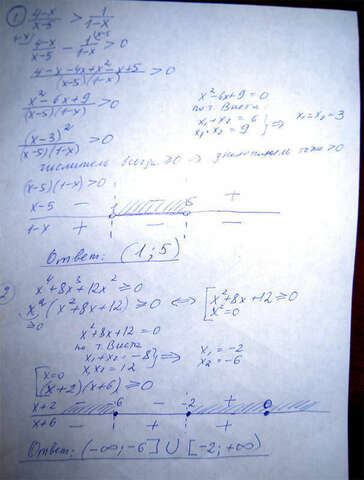 1) (4-x)/(x-5) > 1/(1-x)
(4-x)/(x-5) - 1/(1-x) > 0
(4-x-4x+x²-x+5)/((x-5)(1-x)) > 0
(x²-6x+9)/((x-5)(1-x)) > 0
x²-6x+9=0
по т. Виета:
x₁+x₂=6
x₁·x₂=9 } ⇒ x₁=x₂=3
(x-3)²/((x-5)(1-x)) > 0
числитель всегда ≥0 ⇒ знаменатель тоже >0
(x-5)(1-x)>0
x-5 - - 5 +
1-x + - -
Ответ: (1;5)
2 x⁴+8x³+12x²≥0
x²(x²+8x+12)≥0 ⇔ [ x²+8x+12≥0
≥0 x²=0
x²+8x+12=0
по т. Виета
x₁+x₂=-8
x₁x₂=12 } ⇒ x₁=-2
x₂=-6
[ x=0
(x+2)(x+6)≥0
x+2 - -6 - -2 + 0
x+6 - + +
Ответ: (-∞;-6] ∪ [-2;+∞)